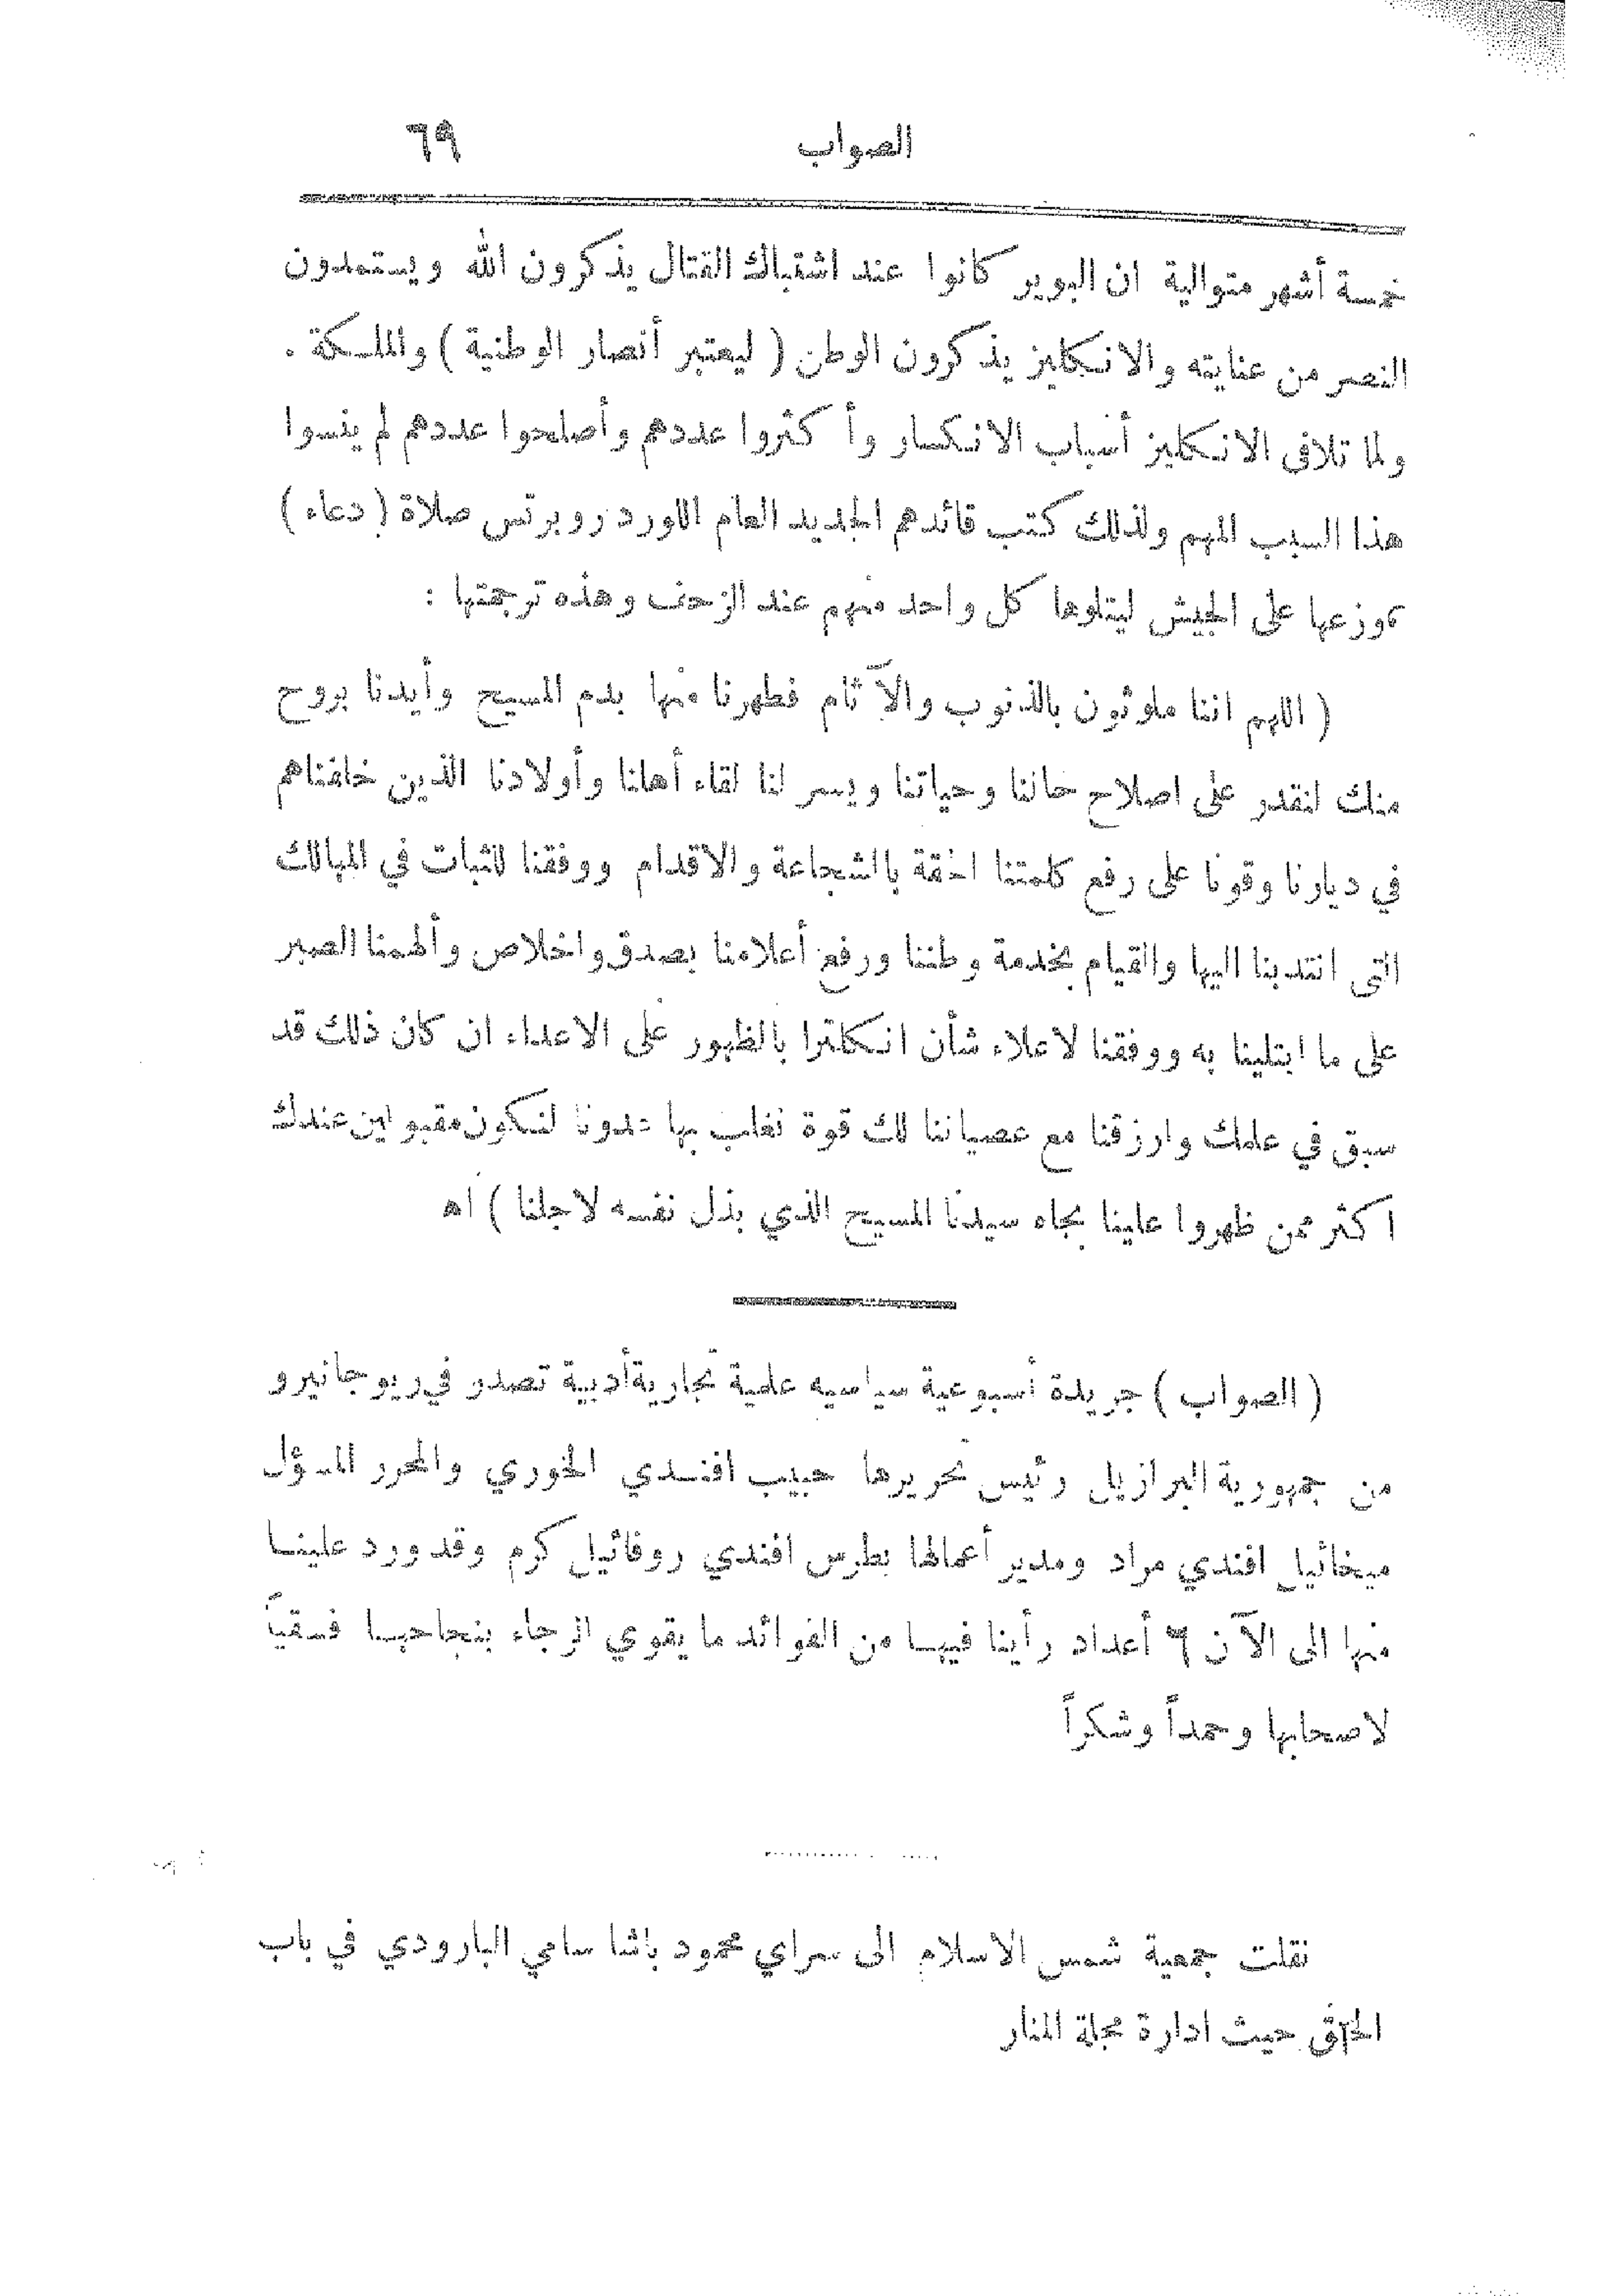 الصواب ٦٩
خمسة أشهر متوالية ان البوير كانوا عند اشتباك القتال يذكرون الله ويستمدون
النصر من عنايته والانكليز يذكرون الوطن ( ليعتبر أنصار الوطنية ) والملكة .
ولما تلافى الانكليز أسباب الانكسار وأكثروا عددهم وأصلحوا عددهم لم ينسوا
هذا السبب المهم ولذلك كتب قائدهم الجديد العام اللورد روبرتس صلاة ( دعاء )
وزعها على الجيش ليتلوها كل واحد منهم عند الزحف وهذه ترجمتها :
( اللهم اننا ملوثون بالذنوب والآثام فطهرنا منها بدم المسيح وأيدنا بروح
منك لنقدر على اصلاح حالنا وحياتنا ويسر لنا لقاء أهلنا وأولادنا الذين خلفناهم
في ديارنا وقونا على رفع كلمتنا الحقة بالشجاعة والاقدام ووفقنا للثبات في المهالك
التى انتدبنا اليها والقيام بخدمة وطننا ورفع أعلامنا بصدق واخلاص وألهمنا الصبر
على ما ابتلينا به ووفقنا لاعلاء شأن انكلترا بالظهور على الاعداء ان كان ذلك قد
سبق في علمك وارزقنا مع عصياننا لك قوة نغلب بها عدونا لنكون مقبولين عندك
اكثر ممن ظهروا علينا بجاه سيدنا المسيح الذي بذل نفسه لاجلنا ) اه
( الصواب ) جريدة أسبوعية سياسيه علمية تجارية أدبية تصدر في ريو جانيرو
من جمهورية البرازيل رئيس تحريرها حبيب افندي الخوري والمحرر المسؤل
ميخائيل افندي مراد ومدير أعمالها بطرس افندي روفائيل كرم وقد ورد علينا
منها الى الآن ٦ أعداد رأينا فيها من الفوائد ما يقوي الرجاء بنجاحها فسقياً
لاصحابها وحمداً وشكراً
نقلت جمعية شمس الاسلام الى سراي محمود باشا سامي البارودي في باب
الخلق حيث ادارة مجلة المنار